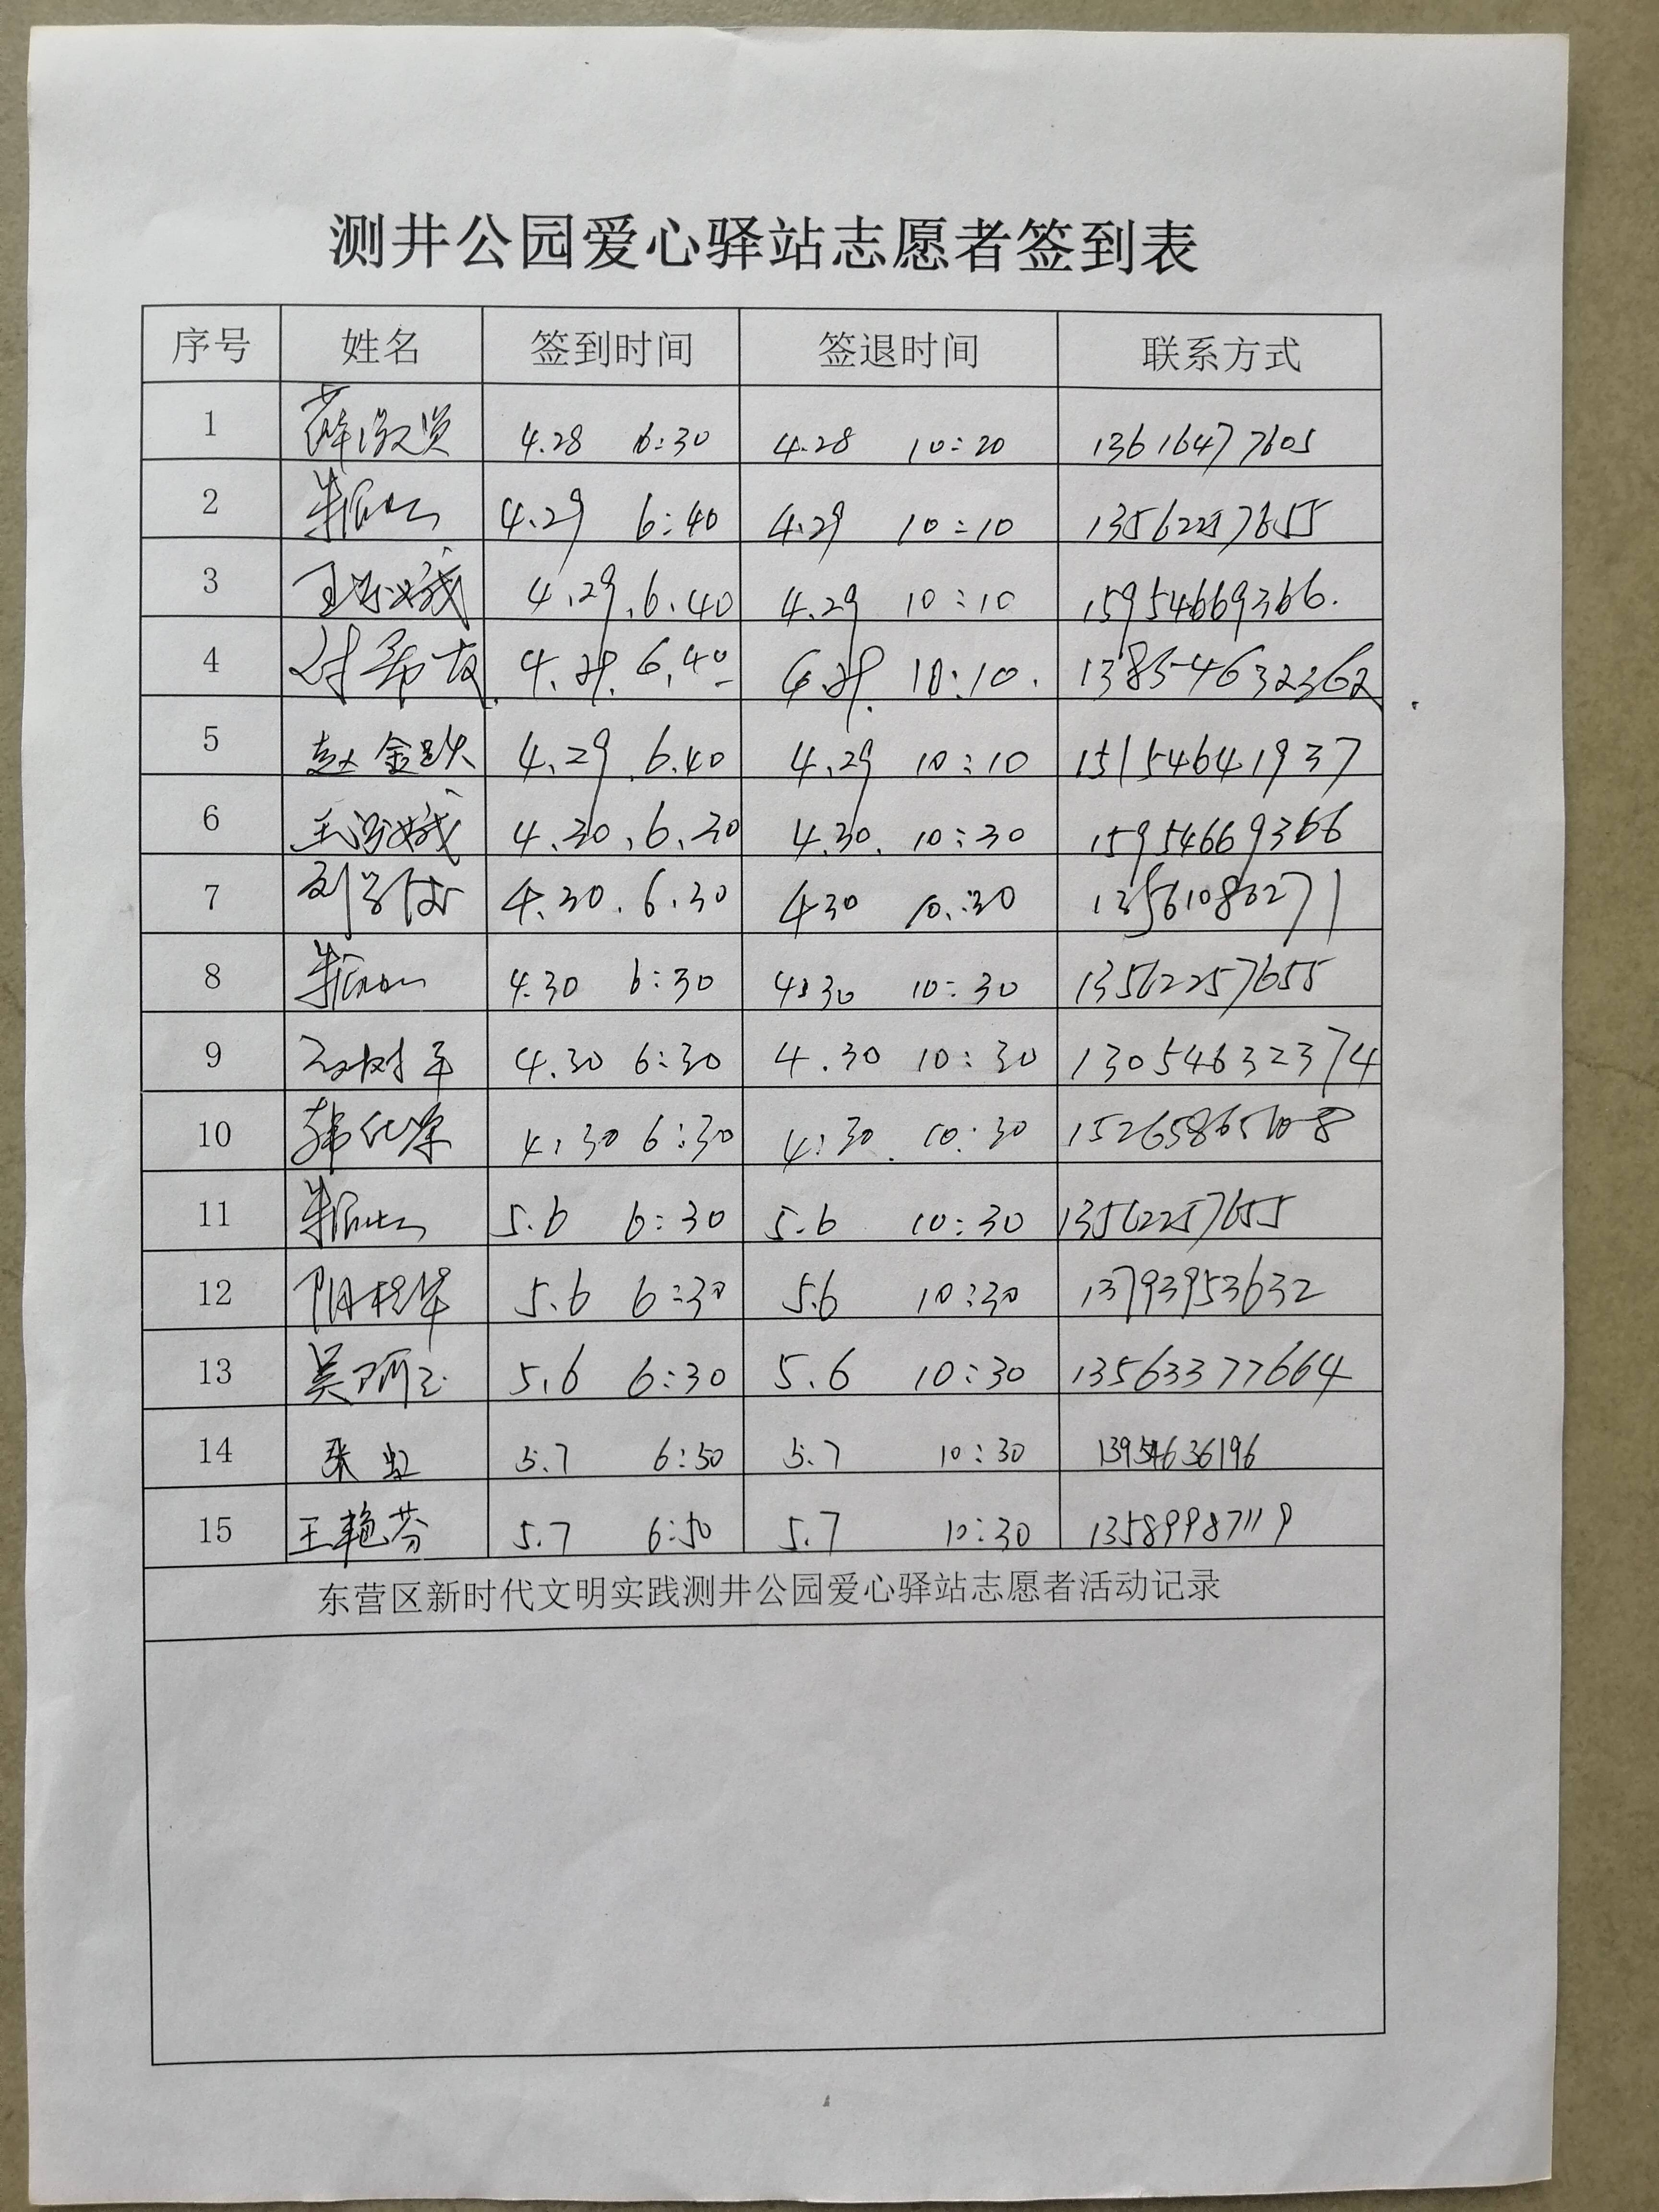 测井公园爱心驿站志愿者签到表
序号 姓名 签到时间 签退时间 联系方式
1 薛 4.28 6:30 4.28 10:20 13616477605
2 4.29 6:40 4.29 10:10 13562257655
3 王 4.29.6.40 4.29 10:10 15954669366.
4 付希友 4.29.6.40 4.29. 10:10. 13854632362
5 赵金跃 4.29.6.40 4.29 10:10 15154641937
6 王 4.30.6.30 4.30. 10:30 15954669366
7 刘 4.30.6.30 4.30 10:30
8 4.30 6:30 4.30 10:30 13562257655
9 4.30 6:30 4.30 10:30 13054632374
10 韩化 4.30 6:30 4.30. 10:30
11 5.6 6:30 5.6 10:30 13562257655
12 5.6 6:30 5.6 10:30 13793953632
13 吴 5.6 6:30 5.6 10:30 13563377664
14 张虹 5.7 6:50 5.7 10:30 13954636196
15 王艳芬 5.7 6:50 5.7 10:30 13589987119
东营区新时代文明实践测井公园爱心驿站志愿者活动记录